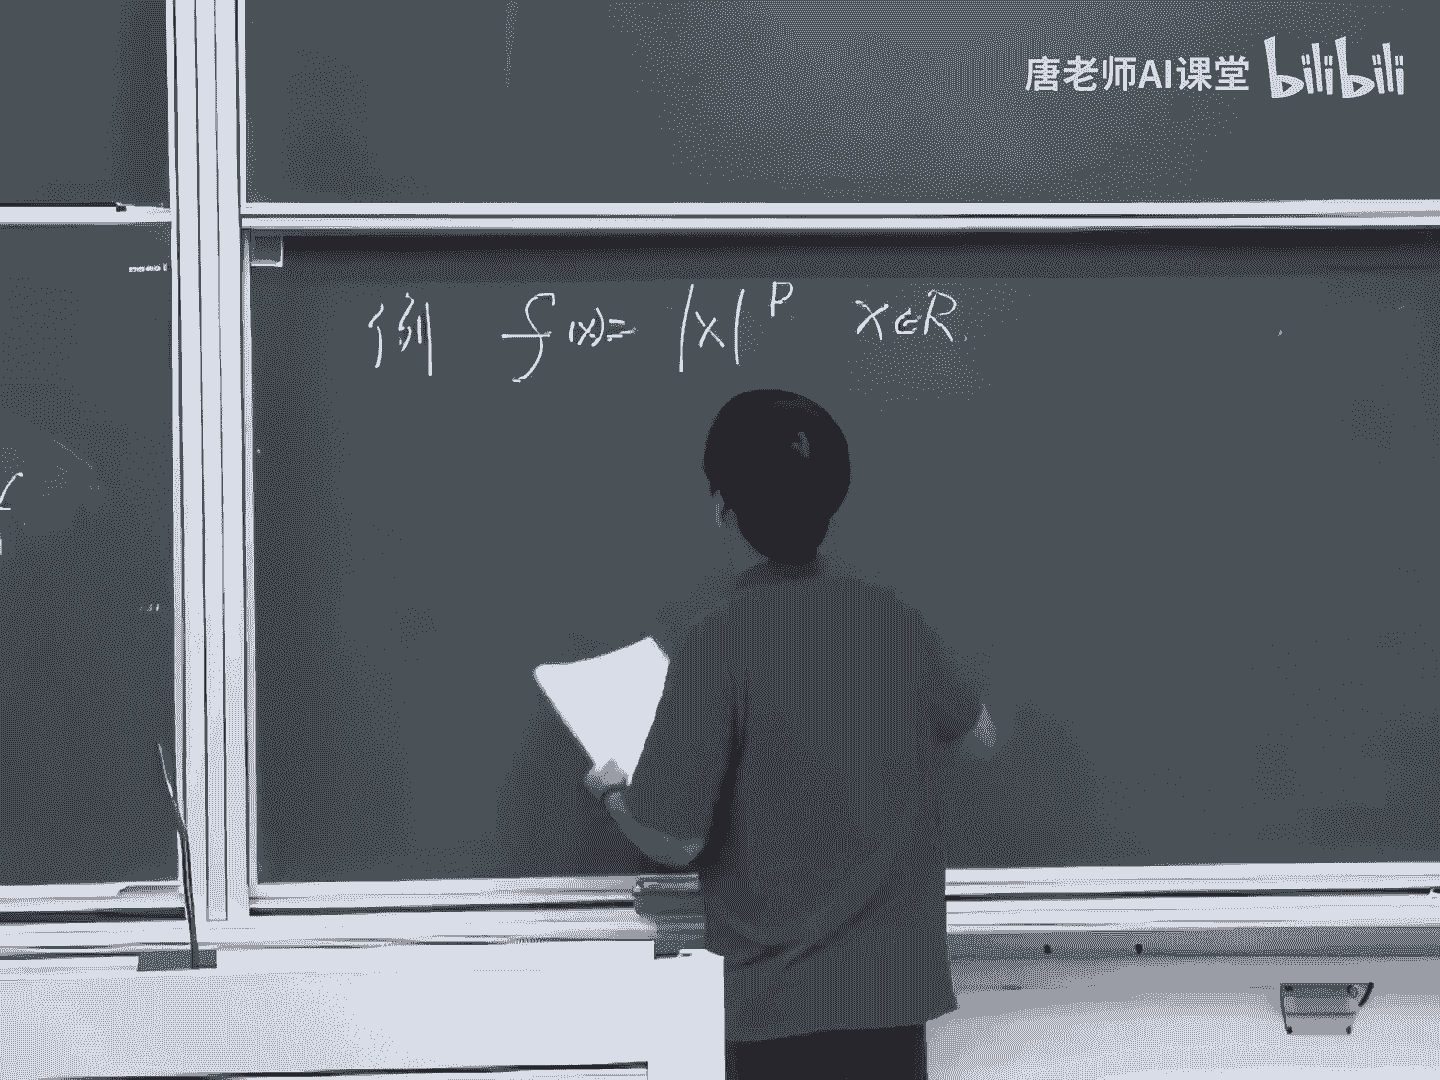 唐老师AI课堂 bilibili
例 f(x)= |x|^p x∈R